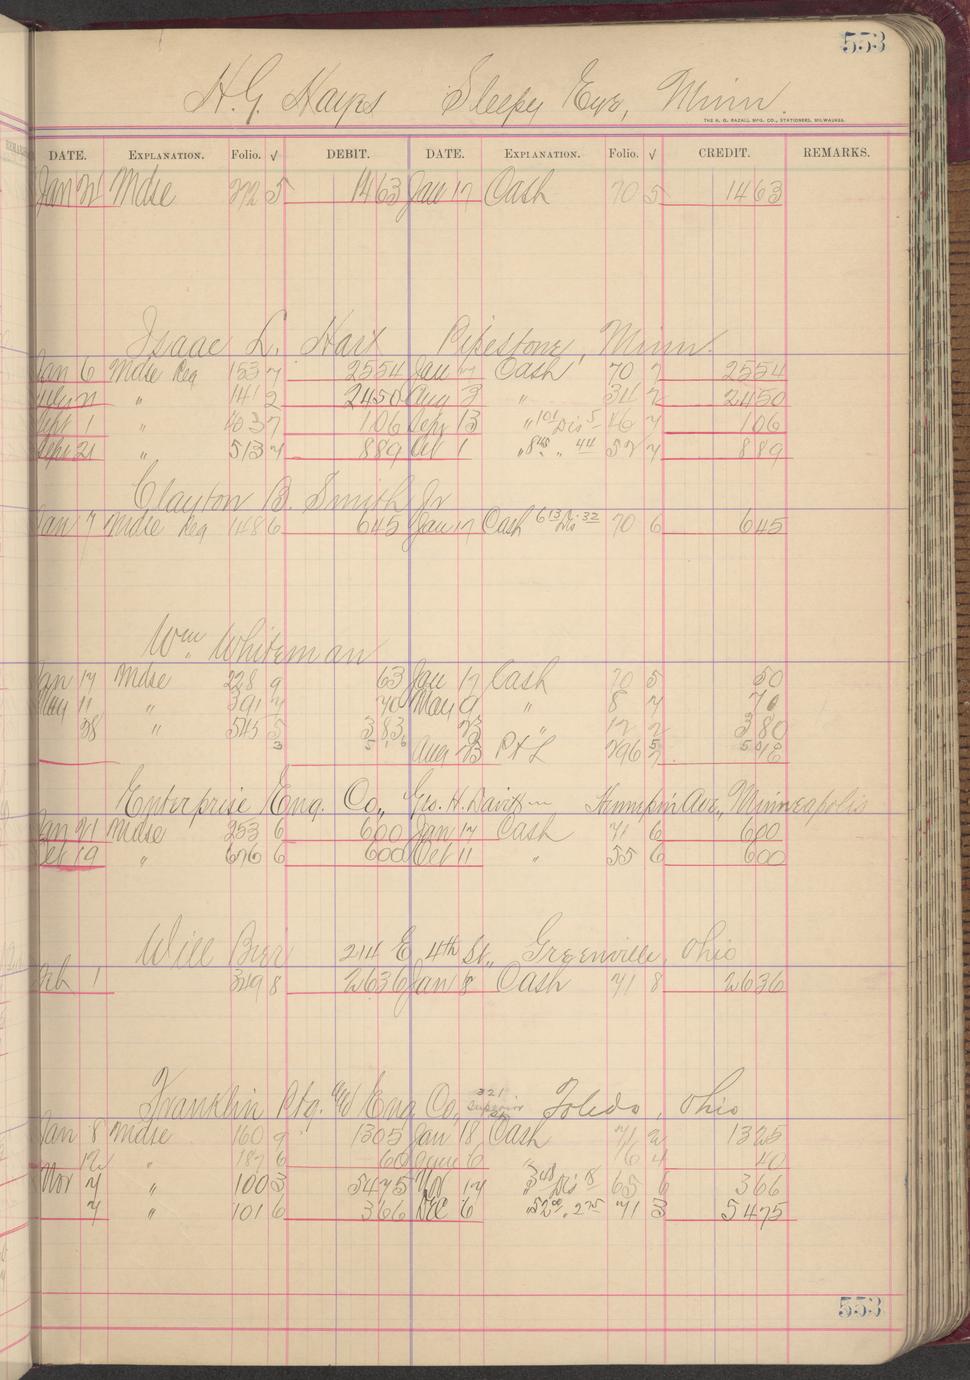 553
H. G. Hayes Sleepy Eye, Minn.
THE H. G. RAZALL MFG. CO., STATIONERS, MILWAUKEE.
DATE. EXPLANATION. Folio. √ DEBIT. DATE. EXPLANATION. Folio. √ CREDIT. REMARKS.
Jan 21 Mdse 272 5 1463 Jan 17 Cash 70 5 1463
Isaac L. Hart Pipestone, Minn.
Jan 6 Mdse Reg 153 7 2554 Jan 17 Cash 70 7 2554
July 21 " 141 2 2450 Aug 3 " 34 2 2450
Sept 1 " 403 7 106 Sept 13 " 101 Dis 5 46 7 106
Sept 21 " 513 7 889 Oct 1 " 845 " 44 52 7 889
Clayton B. Smith Jr
Jan 7 Mdse Reg 148 6 645 Jan 17 Cash 613 Dis 32 70 6 645
Wm Whiteman
Jan 17 Mdse 228 9 63 Jan 17 Cash 70 5 50
May 11 " 391 7 70 May 9 " 8 7 70
28 " 545 5 383 23 " 12 2 380
3 516 Aug 23 P & L 296 5 18
Enterprise Eng. Co., Geo. H. Hennepin Ave., Minneapolis
Jan 21 Mdse 253 6 600 Jan 17 Cash 71 6 600
Oct 19 " 676 6 600 Oct 11 " 55 6 600
Will Bier 214 E 4th St., Greenville, Ohio
Feb 1 349 8 2636 Jan 18 Cash 71 8 2636
Franklin Ptg. & Eng Co., 321 Superior St Toledo, Ohio
Jan 8 Mdse 160 9 1305 Jan 18 Cash 71 2 1325
12 " 187 6 60 6 " 16 4 40
Nov 7 " 100 3 5475 Nov 17 " 348 Dis 18 65 6 366
7 " 101 6 366 Dec 6 " 5200 " 275 71 3 5475
553